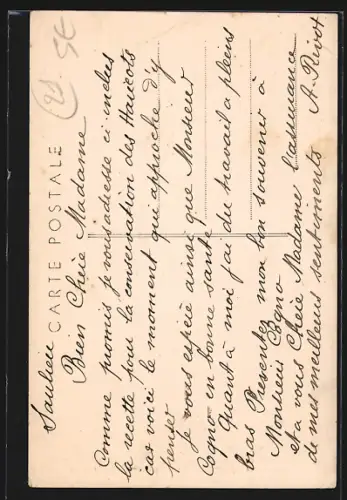 21
5€
CARTE POSTALE
Saulieu
Bien Chère Madame
Comme promis je vous adresse ci inclus
la recette pour la conservation des Haricots
car voici le moment qui approche d'y
penser
Je vous espère ainsi que Monsieur
Cogno en bonne santé
Quant à moi j'ai du travail a pleins
bras Presentez mon bon souvenir à
Monsieur Cogno
et a vous Chère Madame l'assurance
de mes meilleurs sentiments A. Rivot